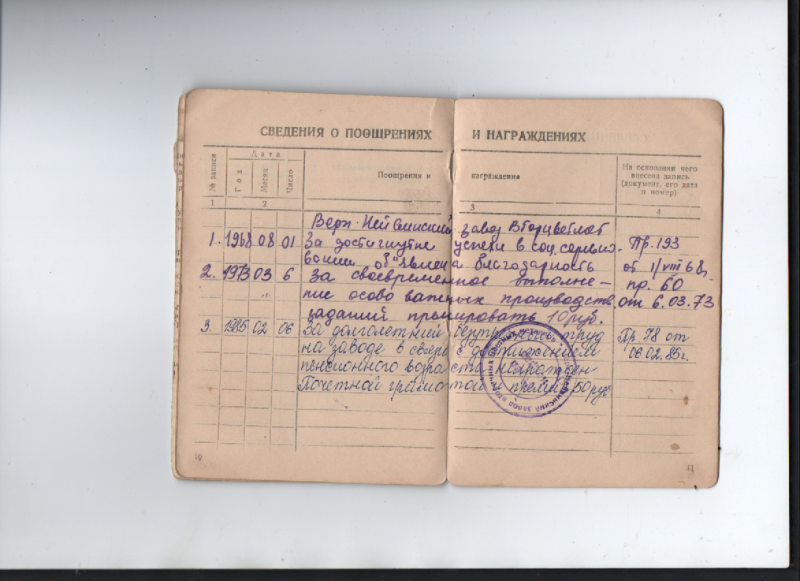 СВЕДЕНИЯ О ПООЩРЕНИЯХ И НАГРАЖДЕНИЯХ
№ записи
Дата
Год
Месяц
Число
Поощрения и награждения
На основании чего
внесена запись
(документ, его дата
и номер)
1 2 3 4
Верх-Нейвинский завод Вторцветмет
1. 1968 08 01 За достигнутые успехи в соц. соревно- Пр. 193
вании об"явлена благодарность от 1/VIII 68г.
2. 1973 03 6 За своевременное выполне- пр. 60
ние особо важных производств. от 6.03.73
заданий премировать 10 руб.
3. 1985 02 06 За долголетний безупречный труд Пр. 78 от
на заводе в связи с достижением 06.02.85г.
пенсионного возраста награжден
Почетной грамотой и премия 50 руб
10
11